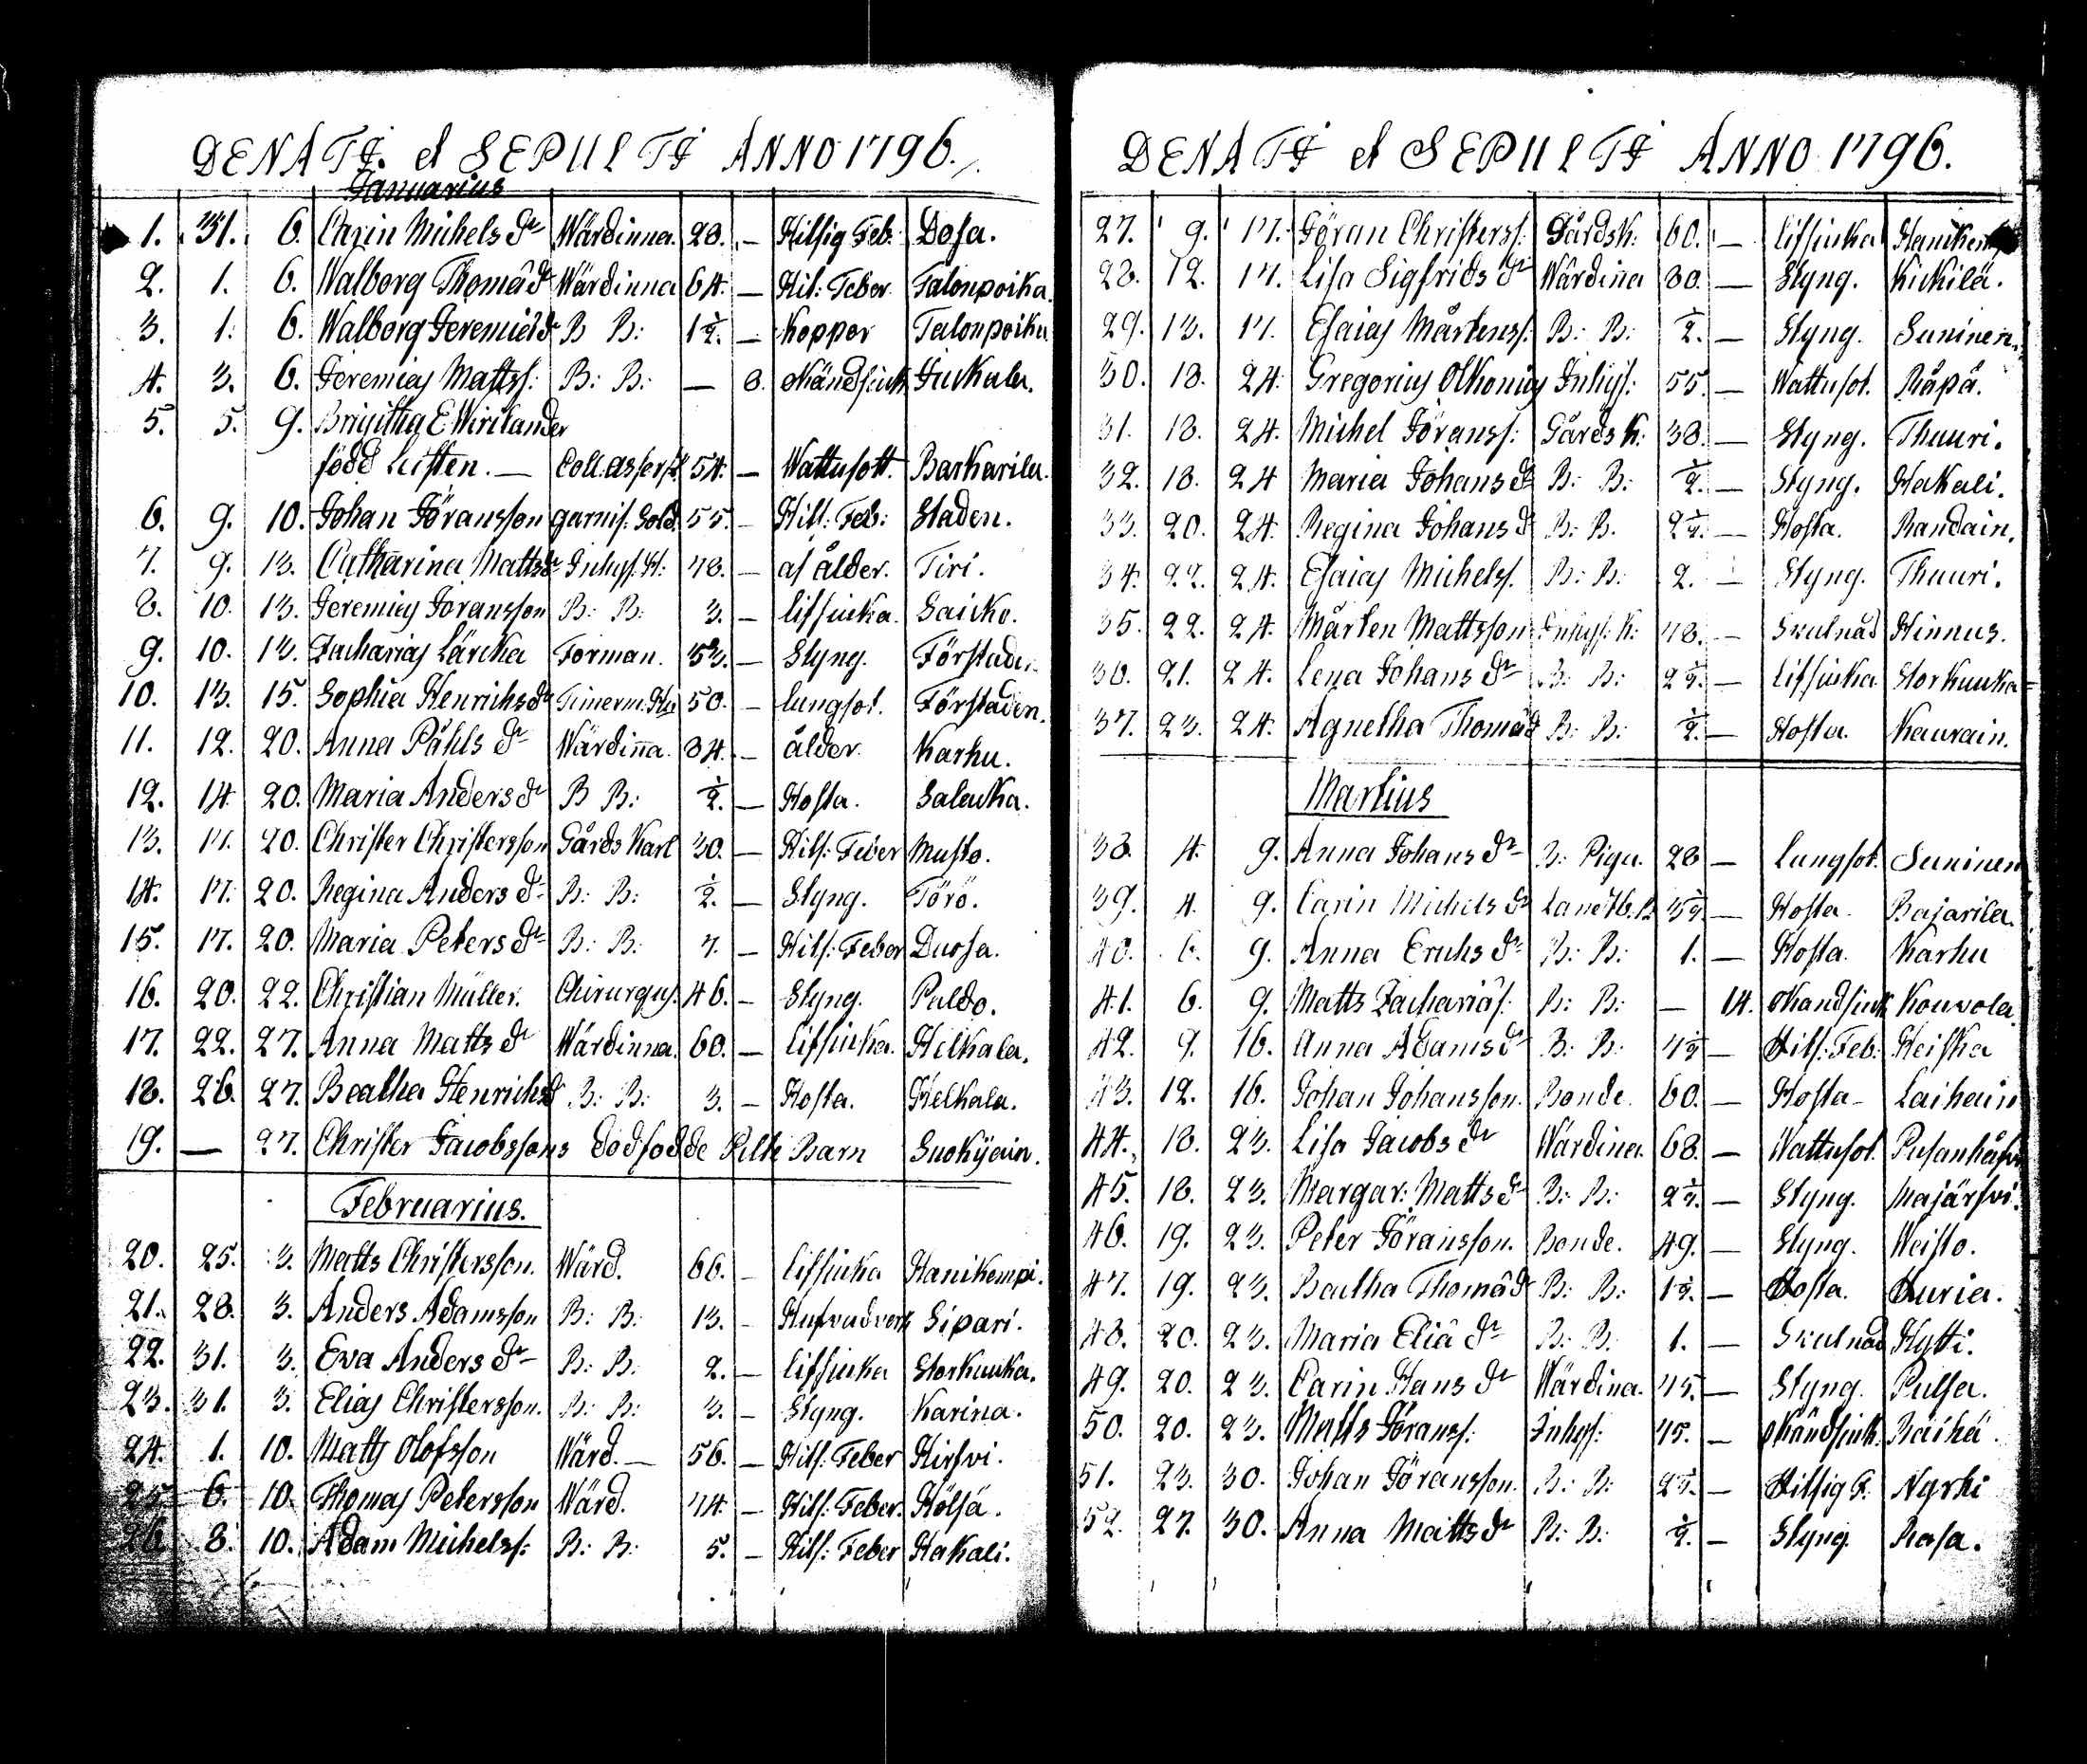 DENATI. et SEPULTI ANNO 1796.
Januarius
1. 31. 6. Carin Michels dr Wärdinna. 28. — Hitsig Feb. Dosa.
2. 1. 6. Walborg Thomä dr Wärdinna 64. — Hit: Feber Talonpoika.
3. 1. 6. Walborg Jeremiæ dr B B: 1½. — Koppor Talonpoika.
4. 3. 6. Jeremias Matts s: B: B: — 8. okändsiuk Juckala.
5. 5. 9. Brigitha E Wirilander
född Lusten. — Coll. Assess: 54. — Wattusott. Barkarila.
6. 9. 10. Johan Jöransson garnis: Sold. 55. — Hits: Feb: Staden.
7. 9. 13. Catharina Matts dr Inhys. H: 78. — af ålder. Tiri.
8. 10. 13. Jeremias Joransson B: B: 3. — lifsiuka. Saicko.
9. 10. 13. Zacharias Lärcka Forman. 53. — Styng. Förstaden.
10. 13. 15. Sophia Henrichs dr Timerm. Hu 50. — lungsot. Förstaden.
11. 12. 20. Anna Påhls dr Wärdinna. 84. — ålder. Karhu.
12. 14. 20. Maria Anders dr B B: ½. — Hosta. Salacka.
13. 17. 20. Christer Christersson Gårds Karl 30. — Hits: Feber Musto.
14. 17. 20. Regina Anders dr B: B: ½. — Styng. Törö.
15. 17. 20. Maria Peters dr B: B: 7. — Hits: Feber Duosa.
16. 20. 22. Christian Müller. Chirurgus. 46. — Styng. Paldo.
17. 22. 27. Anna Matts dr Wärdinna. 60. — lifsiuka. Helkala.
18. 26. 27. Beatha Henrichs dr B: B: 3. — Hosta. Helkala.
19. — 27. Christer Jacobssons dodfodde Pilte Barn Suokyain.
Februarius.
20. 25. 3. Matts Christersson. Wärd. 66. — lifsiuka Hanikempi.
21. 28. 3. Anders Adamsson B: B: 13. — Hufvudverk Sipari.
22. 31. 3. Eva Anders dr B: B: 2. — lifsiuka Storkuuka.
23. 31. 3. Elias Christersson. B: B: 3. — Styng. Karina.
24. 1. 10. Matts Olofsson Wärd. — 56. — Hits: Feber Hirfvi.
25. 6. 10. Thomas Petersson Wärd. 74. — Hits: Feber. Hölsä.
26. 8. 10. Adam Michelss: B: B: 5. — Hits: Feber Hakali.
DENATI et SEPULTI ANNO 1796.
27. 9. 17. Jöran Christerss: Gårdsk: 60. — lifsiuka Hanikempi
28. 12. 17. Lisa Sigfrids dr Wärdina 80. — Styng. Kickilä.
29. 13. 17. Esaias Mårtenss: B: B: ½. — Styng. Suninen.
30. 18. 24. Gregorius Olkonius Inhys: 55. — Wattusot. Räpä.
31. 18. 24. Michel Jöranss: Gårds K: 38. — Styng. Thuuri.
32. 18. 24 Maria Johans dr B: B: ½. — Styng. Hakali.
33. 20. 24. Regina Johans dr B: B. 2½. — Hosta. Randain.
34. 22. 24. Esaias Michelss. B: B: 2. — Styng. Thuuri.
35. 22. 24. Mårten Mattsson Inhys: K: 78. — Svulnad Hinnus.
36. 21. 24. Lena Johans dr B: B: 2½. — lifsiuka Storkuuka
37. 23. 24. Agnetha Thomä dr B: B: ½. — Hosta. Kaurain.
Martius
38. 4. 9. Anna Johans dr B: Piga. 28 — Lungsot. Suninen
39. 4. 9. Carin Michels dr 5½. — Hosta. Bajarila.
40. 6. 9. Anna Erichs dr B: B: 1. — Hosta. Karhu
41. 6. 9. Matts Zachariäs: B: B: — 14. okandsiuk Kouvola.
42. 9. 16. Anna Adams dr B: B: 4½ — Hits: Feb: Heiska
43. 12. 16. Johan Johansson. Bonde. 60. — Hosta — Laihain
44. 18. 23. Lisa Jacobs dr Wärdina. 68. — Wattusot.
45. 18. 23. Margar: Matts dr B: B: 2½. — Styng. Majärfvi.
46. 19. 23. Peter Jöransson. Bonde. 49. — Styng. Weisto.
47. 19. 23. Beatha Thomä dr B: B: 1½. — Hosta. Kuria.
48. 20. 23. Maria Eliä dr B: B: 1. — Svulnad Hytti.
49. 20. 23. Carin Hans dr Wärdina. 45. — Styng. Pulsa.
50. 20. 23. Matts Jöranss: Inhys: 45. — okändsiuk. Räihä.
51. 23. 30. Johan Jöransson. B: B: 2½. — Hitsig F: Nyrki
52. 27. 30. Anna Matts dr B: B: ½. — Styng. Rasa.